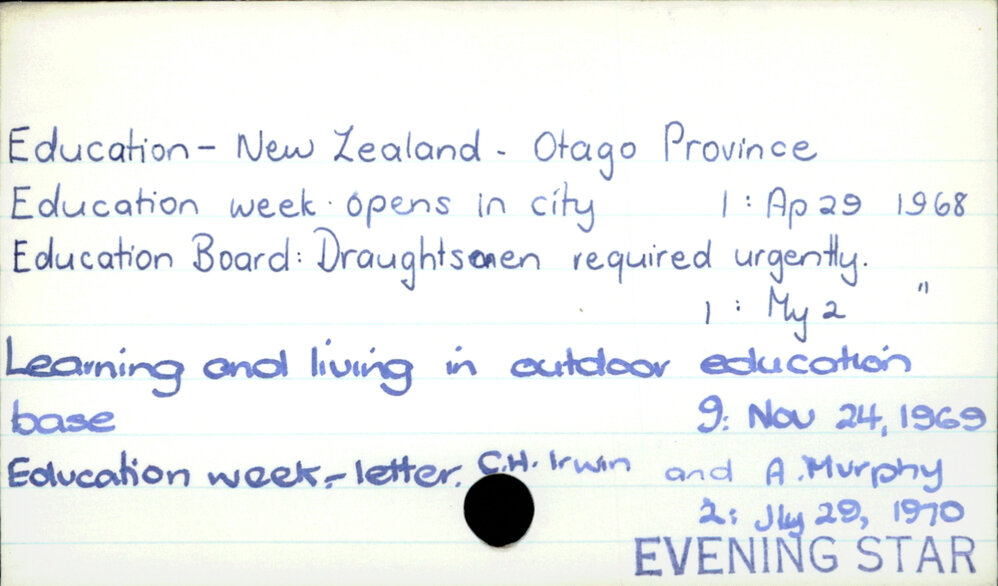 Education - New Zealand - Otago Province
Education week opens in city 1 : Ap 29 1968
Education Board: Draughtsmen required urgently.
1 : My 2 "
Learning and living in outdoor education
base 9: Nov 24, 1969
Education week - letter. C.H. Irwin and A. Murphy
2: Jly 29, 1970
EVENING STAR